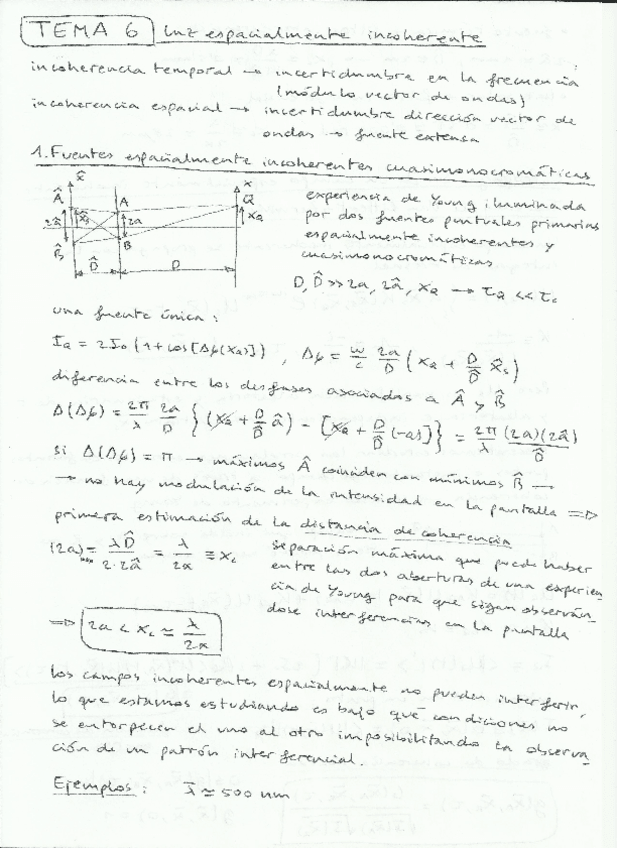 TEMA 6 Luz espacialmente incoherente
incoherencia temporal → incertidumbre en la frecuencia
(módulo vector de ondas)
incoherencia espacial → incertidumbre dirección vector de
ondas → fuente extensa
1. Fuentes espacialmente incoherentes cuasimonocromáticas
x̂ x
Â A Q
2â x̂s 2a xQ
B̂ B
D̂ D
experiencia de Young iluminada
por dos fuentes puntuales primarias
espacialmente incoherentes y
cuasimonocromáticas
D, D̂ >> 2a, 2â, xQ → τQ << τc
una fuente única:
IQ = 2I0 (1 + cos[Δφ(xQ)]) , Δφ = ω/c 2a/D (xQ + D/D̂ x̂s)
diferencia entre los desfases asociados a Â y B̂
Δ(Δφ) = 2π/λ 2a/D {(xQ + D/D̂ â) - [xQ + D/D̂ (-â)]} = 2π/λ (2a)(2â)/D̂
si Δ(Δφ) = π → máximos Â coinciden con mínimos B̂ →
→ no hay modulación de la intensidad en la pantalla ⇒
primera estimación de la distancia de coherencia
(2a)max = λD̂/2·2â = λ/2α ≡ xc
separación máxima que puede haber
entre las dos aberturas de una experien
cia de Young para que sigan observán-
dose interferencias en la pantalla
⇒ 2a < xc ≃ λ/2α
Los campos incoherentes espacialmente no pueden interferir,
lo que estamos estudiando es bajo qué condiciones no
se entorpecen el uno al otro imposibilitando la observa
ción de un patrón interferencial.
Ejemplos: λ̄ ≃ 500 nm